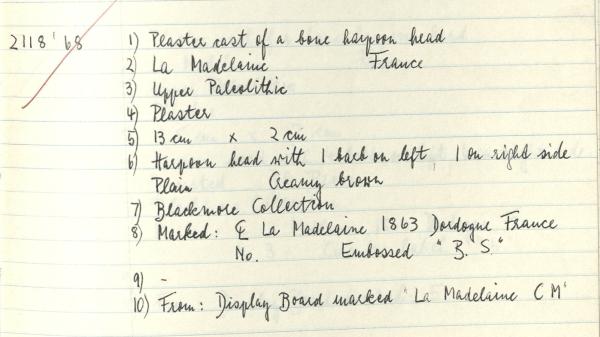 2118'68 1) Plaster cast of a bone harpoon head
2) La Madelaine France
3) Upper Paleolithic
4) Plaster
5) 13 cm x 2 cm
6) Harpoon head with 1 barb on left, 1 on right side
Plain Creamy brown
7) Blackmore Collection
8) Marked: La Madelaine 1863 Dordogne France
No. Embossed "B. S."
9) -
10) From: Display Board marked "La Madelaine C M"